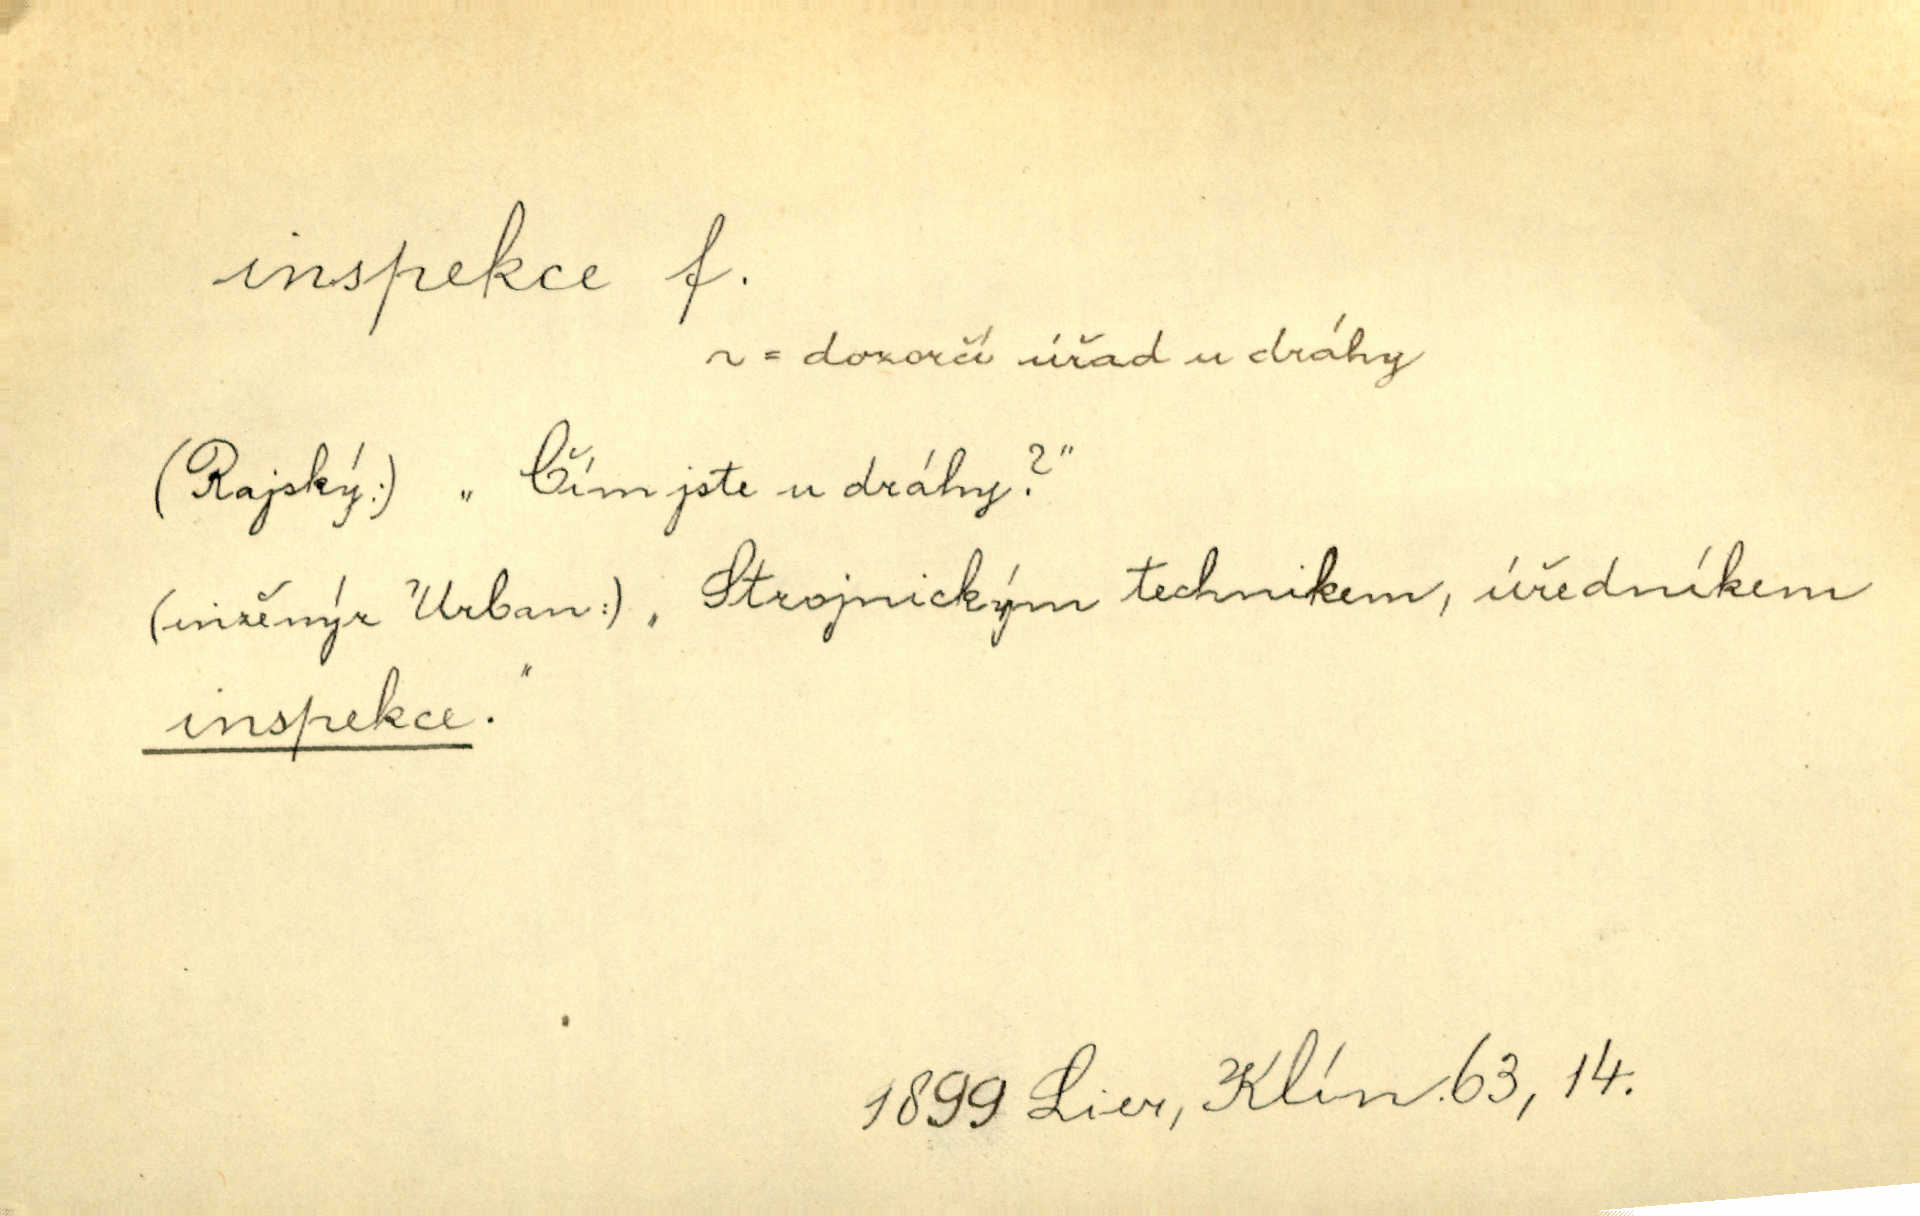 inspekce f.
~ = dozorčí úřad u dráhy
(Rajský:) „Čím jste u dráhy?"
(inžěnýr Urban:) „Strojnickým technikem, úředníkem
inspekce."
1899 Lier, Klín. 63, 14.